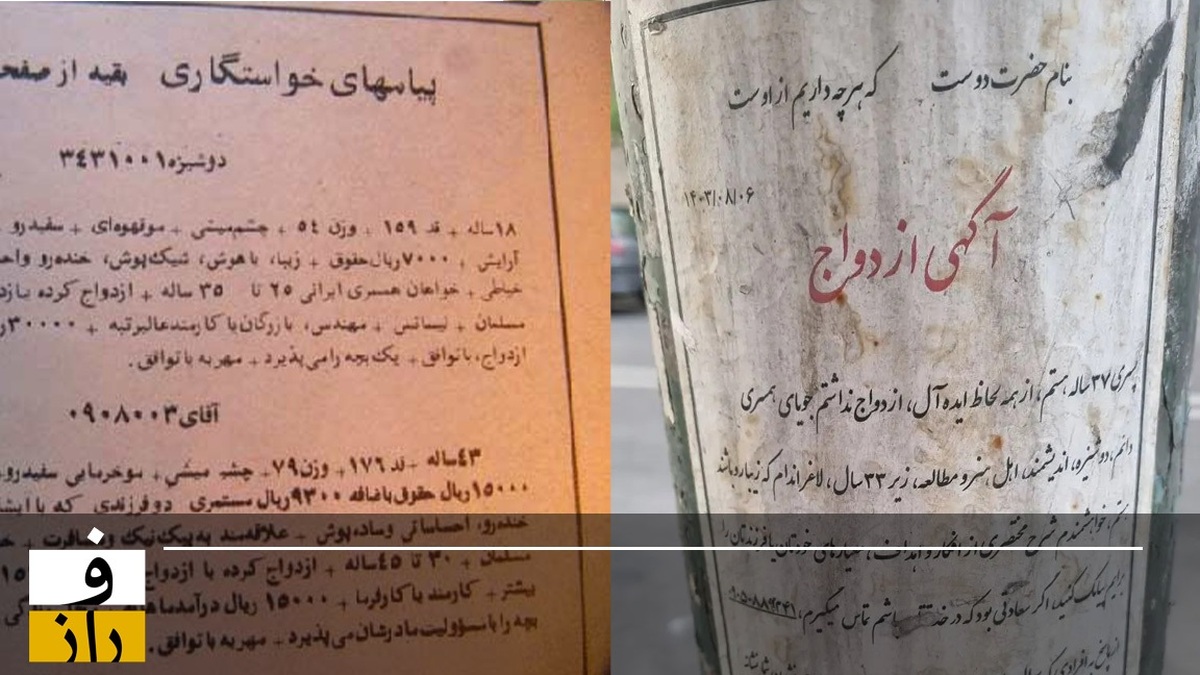 پیامهای خواستگاری بقیه از صفحه
دوشیزه ۳۴۳۱۰۰۱
۱۸ساله + قد ۱۵۹ + وزن ۵۴ + چشم‌میشی + موقهوه‌ای + سفیدرو
آرایش + ۷۰۰۰ریال‌حقوق + زیبا، باهوش، شیک‌پوش، خنده‌رو
خیاطی + خواهان همسری ایرانی ۲۵ تا ۳۵ ساله + ازدواج کرده
مسلمان + لیسانس + مهندس، بازرگان‌یا کارمندعالیرتبه + ۳۰۰۰۰
ازدواج، باتوافق + یک‌بچه‌رامی‌پذیرد + مهریه باتوافق.
آقای ۰۹۰۸۰۰۳
۴۳ساله + قد ۱۷۶ + وزن ۷۹ + چشم میشی + موخرمایی سفیدرو
۱۵۰۰۰ریال حقوق‌باضافه ۹۳۰۰ریال مستمری دوفرزندی که با
خنده‌رو، احساساتی وساده‌پوش + علاقه‌مند به‌پیک‌نیک ومسافرت +
مسلمان + ۳۰ تا ۴۵ساله + ازدواج کرده با ازدواج
بیشتر + کارمند یا کارفرما + ۱۵۰۰۰ ریال درآمد
بچه رابامسؤولیت مادرشان‌می‌پذیرد + مهریه باتوافق.
بنام حضرت دوست که هرچه داریم از اوست
۱۴۰۳/۰۸/۰۶
آگهی ازدواج
پسری ۳۷ ساله هستم، از همه لحاظ ایده آل، ازدواج نداشتم جویای همسری
دائم، دوشیزه، اندیشمند، اهل هنر و مطالعه، زیر ۳۳ سال، لاغر اندام که زیبارو باشد
هستم، خواهشمندم شرح مختصری از افکار و اهداف، معیارهای خودتان یا فرزندتان را
برایم پیامک کنید، اگر سعادتی بود که در خدمت باشم تماس میگیرم،
فراز